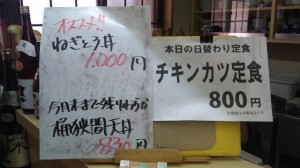 オススメ!!
ねぎとろ丼
1,000円
今月末までの
桶狭間天丼
830円
本日の日替わり定食
チキンカツ定食
800円